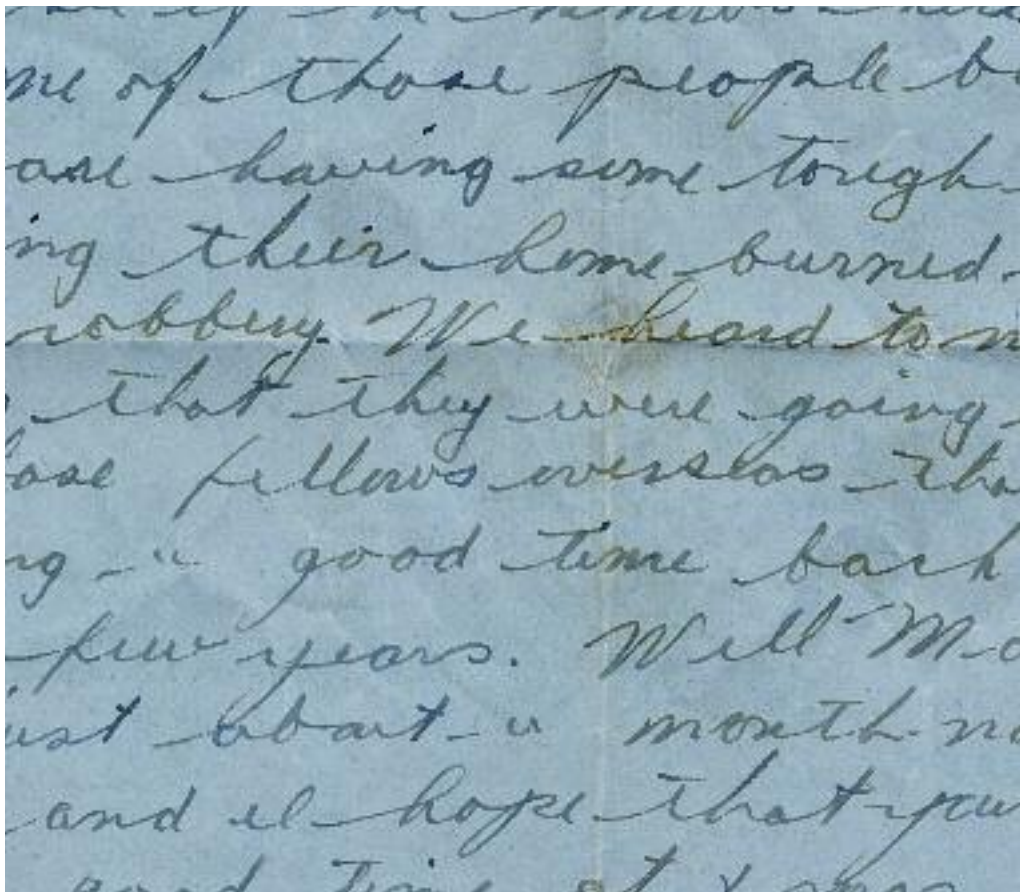 me of those people b
are having some tough
ing their home burned
robbery. We heard to
that they were going
hose fellows overseas tha
ng a good time back
few years. Well Ma
just about a month no
and I hope that you
good time at